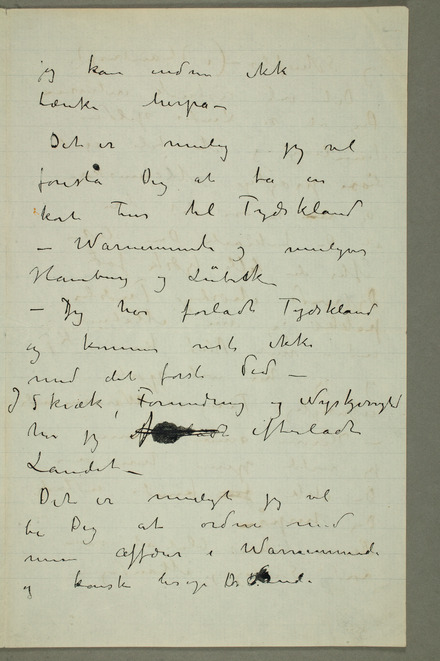 jeg kan endnu ikke
tænke herpå –
Det er mulig jeg vil
foreslå Dig at ta en
kort Tur til Tydskland
– Warnemünde og muligvis
Hamburg og Lübeck
– Jeg har forladt Tydskland
og kommer nok ikke
med det første did –
I Skræk, Forundring og Nysgjerrighed
har jeg efterladt
Landet –
Det er muligt jeg vil
be Dig at ordne med
mine affærer i Warnemünde
og kanske besøge Dr